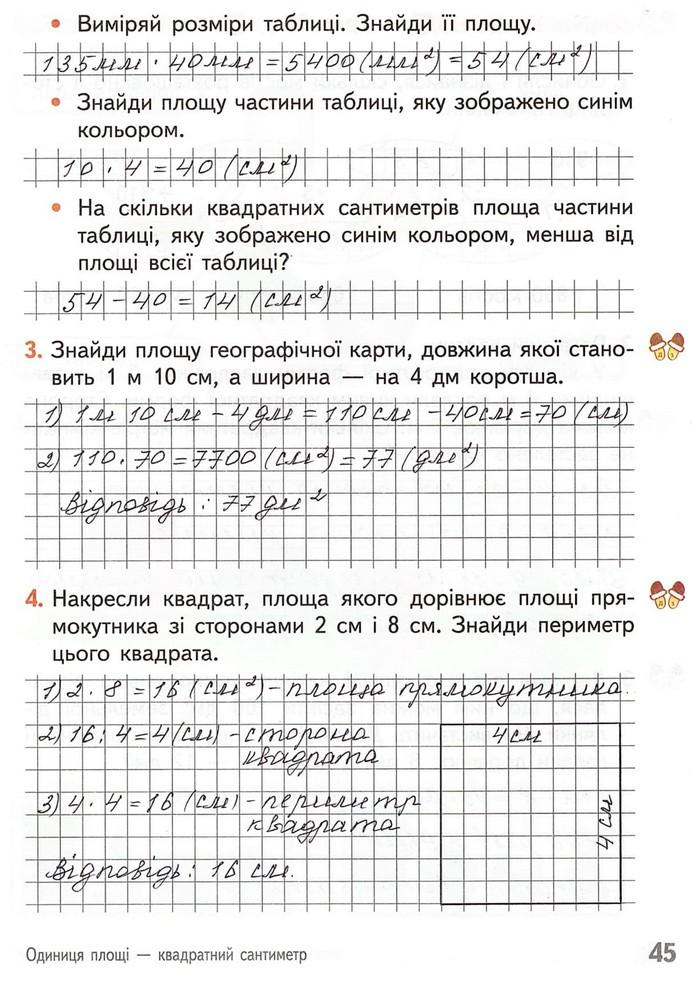 • Виміряй розміри таблиці. Знайди її площу.
135мм · 40мм = 5400 (мм²) = 54 (см²)
• Знайди площу частини таблиці, яку зображено синім
кольором.
10 · 4 = 40 (см²)
• На скільки квадратних сантиметрів площа частини
таблиці, яку зображено синім кольором, менша від
площі всієї таблиці?
54 – 40 = 14 (см²)
3. Знайди площу географічної карти, довжина якої стано-
вить 1 м 10 см, а ширина — на 4 дм коротша.
1) 1м 10 см – 4 дм = 110 см – 40см = 70 (см)
2) 110 · 70 = 7700 (см²) = 77 (дм²)
Відповідь : 77 дм²
4. Накресли квадрат, площа якого дорівнює площі пря-
мокутника зі сторонами 2 см і 8 см. Знайди периметр
цього квадрата.
1) 2 · 8 = 16 (см²) – площа прямокутника.
2) 16 : 4 = 4 (см) – сторона
квадрата
4см
3) 4 · 4 = 16 (см) – периметр
квадрата
4 см
Відповідь : 16 см.
Одиниця площі — квадратний сантиметр
45